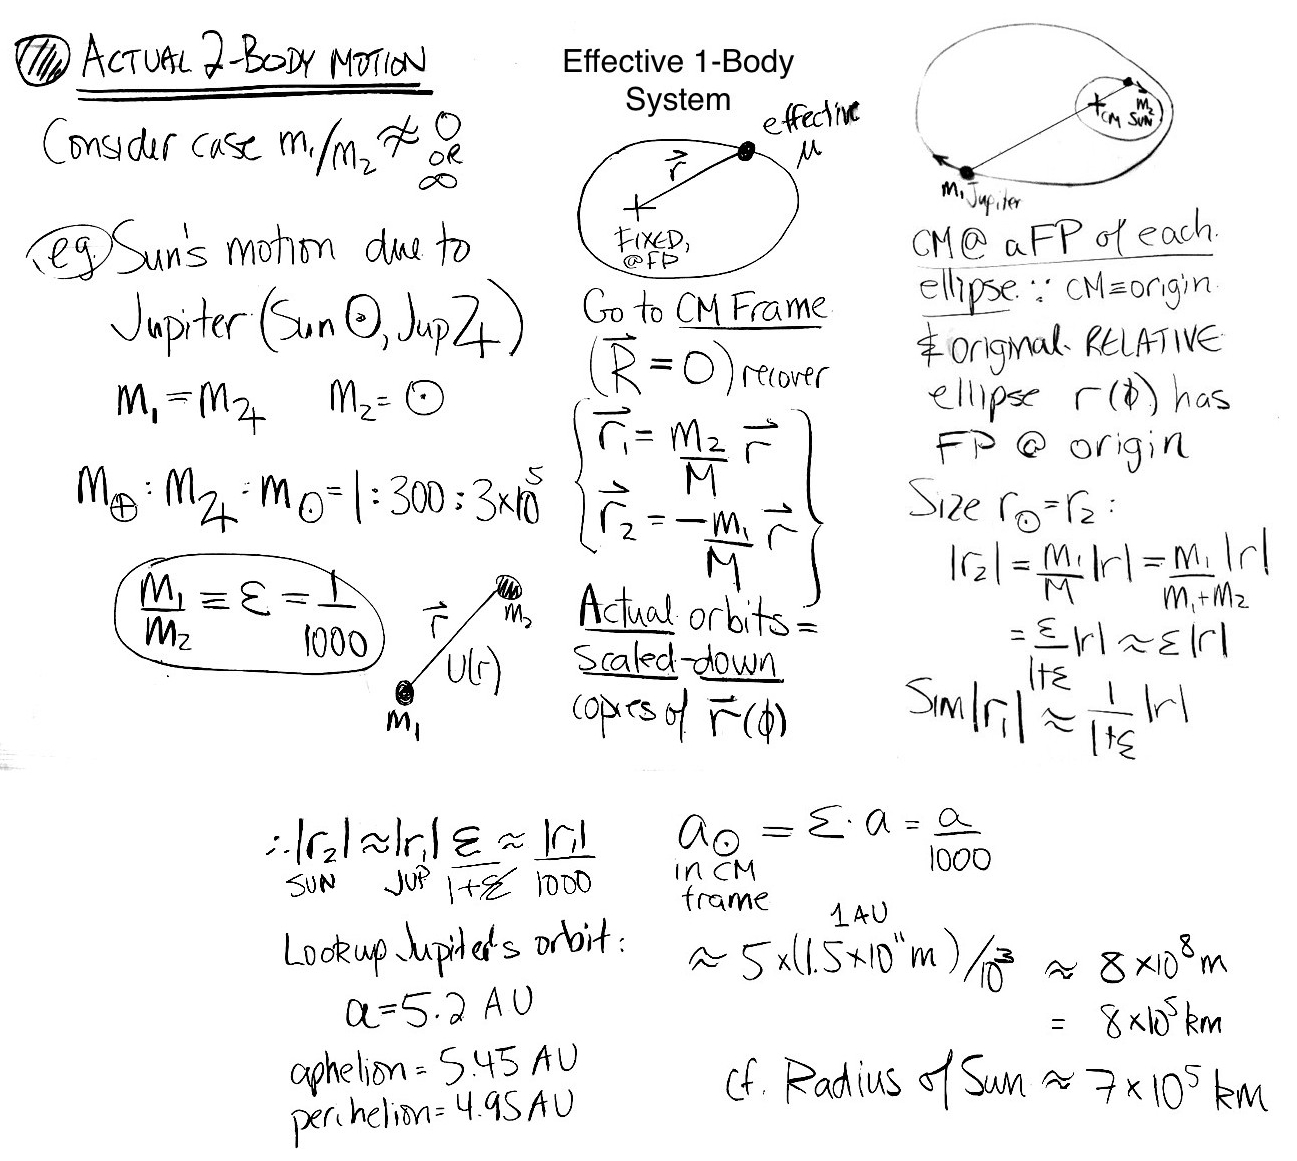 ACTUAL 2-BODY MOTION
Consider case m₁/m₂ ≉ 0
OR
∞
eg Sun's motion due to
Jupiter (Sun ☉, Jup ♃)
m₁ = m♃ m₂ = ☉
m⊕ : m♃ : m☉ = 1 : 300 : 3×10⁵
m₁/m₂ ≡ ε = 1/1000
r⃗
m₂
U(r)
m₁
Effective 1-Body
System
effective
μ
r⃗
FIXED,
@FP
Go to CM Frame
(R⃗ = 0) recover
r⃗₁ = m₂/M r⃗
r⃗₂ = -m₁/M r⃗
Actual orbits =
scaled-down
copies of r⃗(ϕ)
m₂
CM SUN
m₁ Jupiter
CM @ a FP of each
ellipse ∵ CM≡origin
& original RELATIVE
ellipse r(ϕ) has
FP @ origin
Size r☉=r₂ :
|r₂| = m₁/M |r| = m₁/(m₁+m₂) |r|
= ε/(1+ε) |r| ≈ ε|r|
Sim |r₁| ≈ 1/(1+ε) |r|
∴ |r₂| ≈ |r₁| ε/(1+ε) ≈ |r₁|/1000
SUN JUP
Lookup Jupiter's orbit:
a=5.2 AU
aphelion = 5.45 AU
perihelion = 4.95 AU
a☉ = ε·a = a/1000
in CM
frame
1 AU
≈ 5×(1.5×10¹¹m)/10³ ≈ 8×10⁸m
= 8×10⁵km
cf. Radius of Sun ≈ 7×10⁵ km